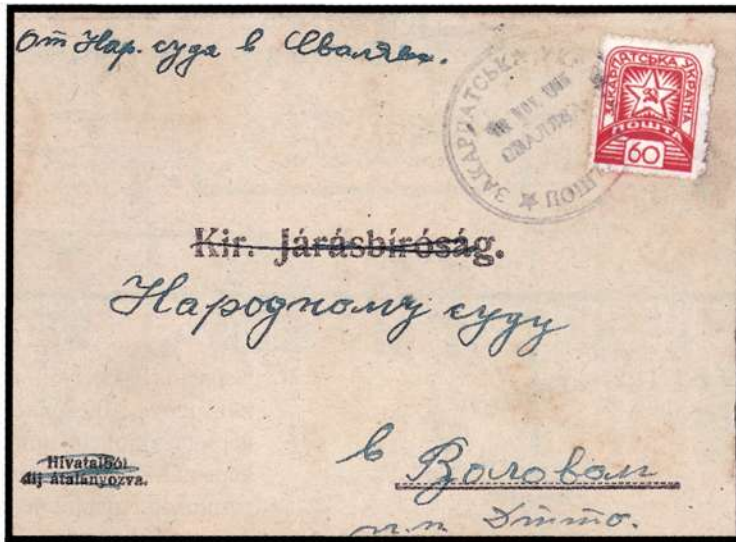 От Нар. суда в Сваляве.
ЗАКАРПАТСЬКА УКРАЇНА
ПОШТА
60
ЗАКАРПАТСЬКА УКР
СВАЛЯВА
ПОШТА
Kir. Járásbíróság.
Народному суду
в Воловом
Hivatalból
díj átalányozva.
п.п. Дітто.